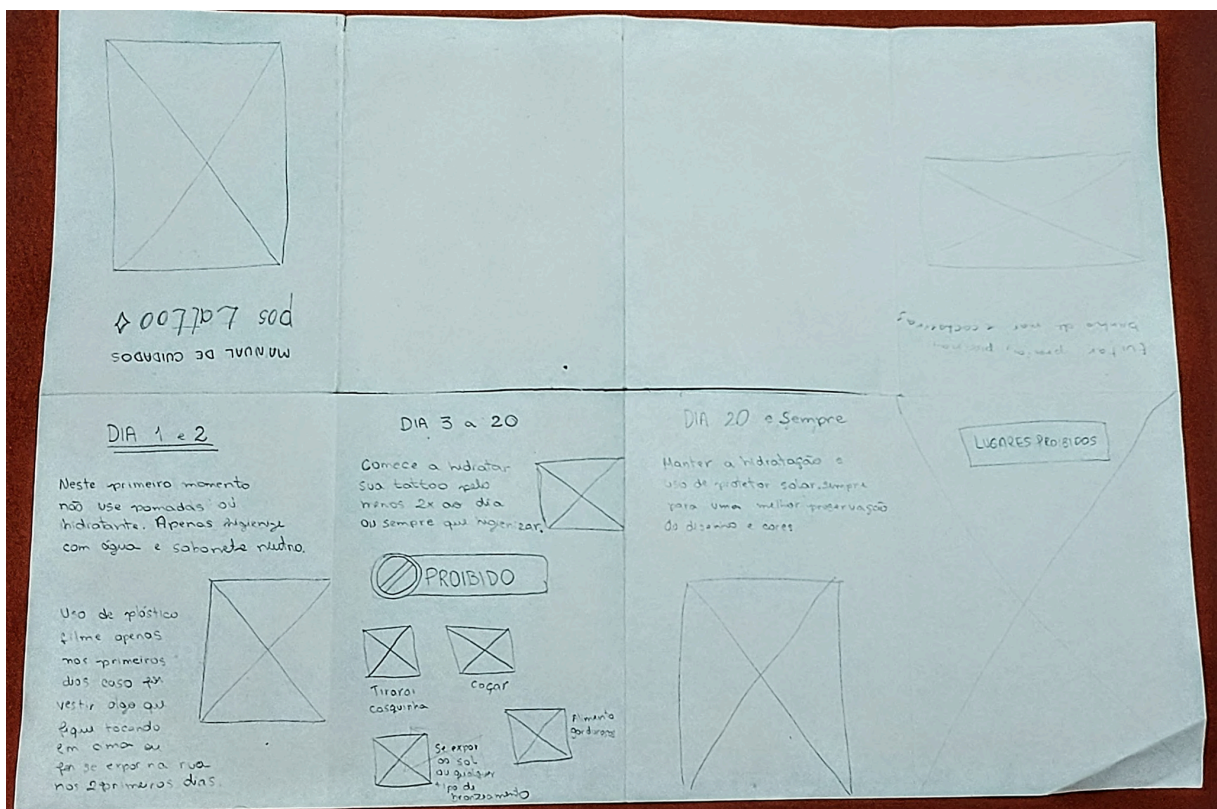 MANUAL DE CUIDADOS
pos tattoo
Evitar praias, piscinas,
banho de mar e cachoeiras
DIA 1 e 2
Neste primeiro momento
não use pomadas ou
hidratante. Apenas higienize
com água e sabonete neutro.
Uso de plástico
filme apenas
nos primeiros
dias caso for
vestir algo que
fique tocando
em cima ou
for se expor na rua
nos 2 primeiros dias.
DIA 3 a 20
Comece a hidratar
sua tattoo pelo
menos 2x ao dia
ou sempre que higienizar.
PROIBIDO
Tirar a
casquinha
Coçar
Se expor
ao sol
ou qualquer
tipo de
bronzeamento
Alimento
gorduroso
DIA 20 e Sempre
Manter a hidratação e
uso de protetor solar sempre
para uma melhor preservação
do desenho e cores
LUGARES PROIBIDOS